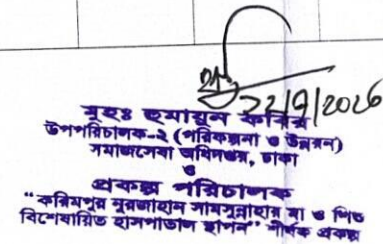 ২২/9/2026
মুহঃ হুমায়ুন কবির
উপপরিচালক-২ (পরিকল্পনা ও উন্নয়ন)
সমাজসেবা অধিদপ্তর, ঢাকা
ও
প্রকল্প পরিচালক
“করিমপুর নুরজাহান সামসুন্নাহার মা ও শিশু
বিশেষায়িত হাসপাতাল স্থাপন” শীর্ষক প্রকল্প